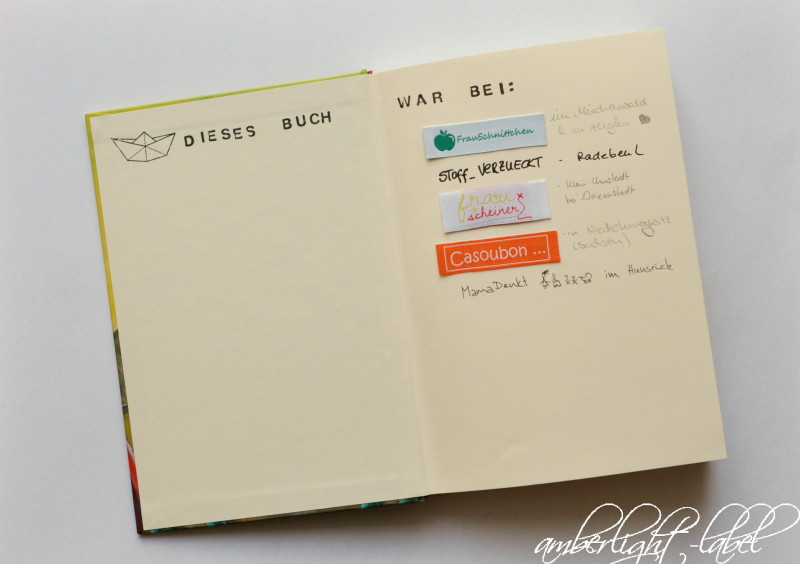 DIESES BUCH
WAR BEI:
FrauSchnittchen
im Nordschwarzwald
& im Allgäu
STOFF_VERZUECKT - Radebeul
frau
scheiner
bei Darmstadt
Casoubon ...
in
(Sachsen)
MamaDenkt im Hunsrück
amberlight-label